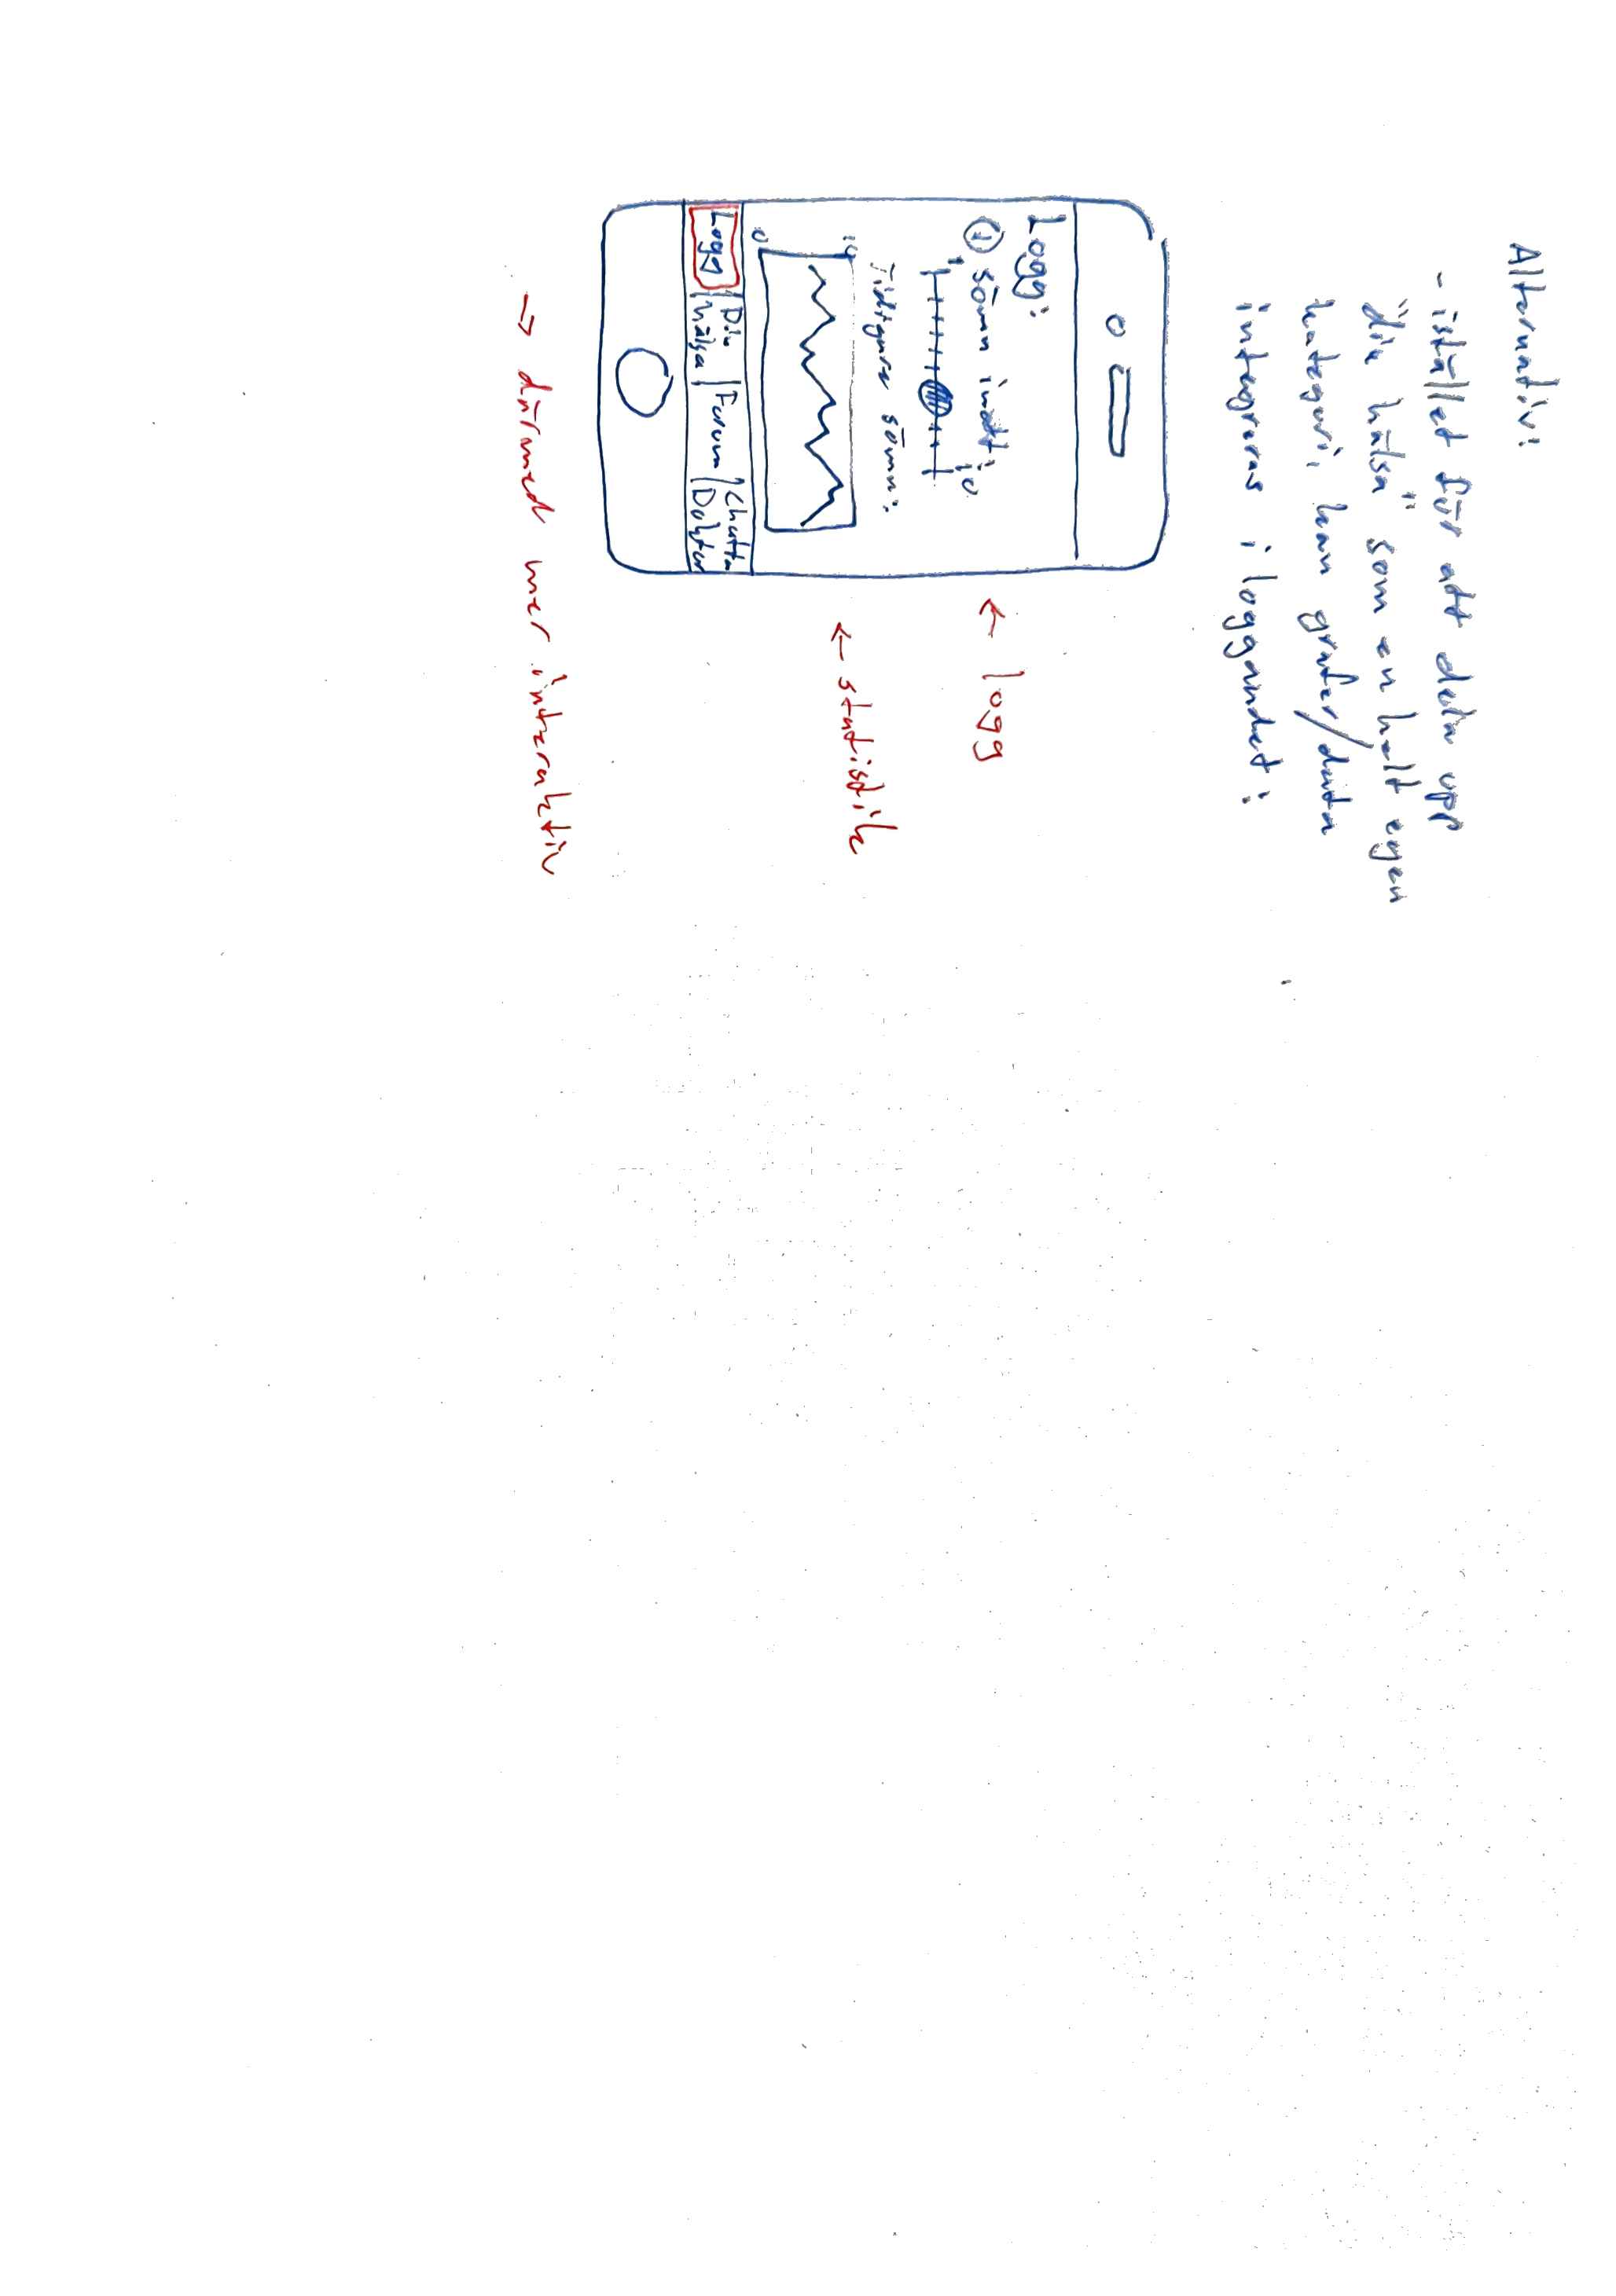 Alternativ:
- istället för att dela upp
"din hälsa" som en helt egen
kategori, kan grafer/data
integreras i loggandet:
Logg:
① sömn inatt:
1 10
Tidigare sömn:
10
0
Logg Din hälsa Forum Chatta Doktor
← logg
← statistik
→ därmed mer interaktiv